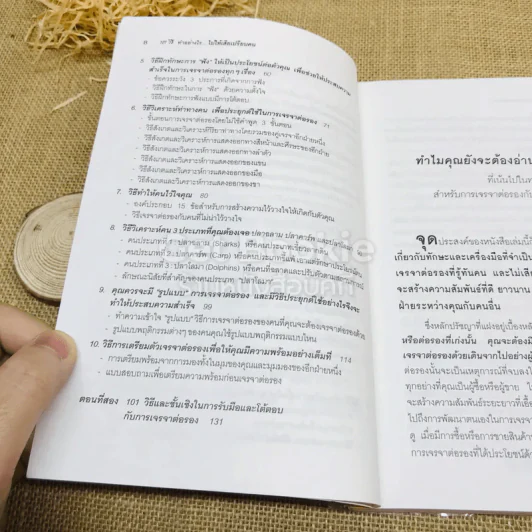 ๘ ๑๐๑ วิธี ทำอย่างไร...ไม่ให้เสียเปรียบคน
5. วิธีฝึกทักษะการ "ฟัง" ให้เป็นประโยชน์ต่อตัวคุณ เพื่อช่วยให้ประสบความ
สำเร็จในการเจรจาต่อรองทุกๆ เรื่อง 60
- ข้อควรระวัง 3 ประการที่เกิดจากการฟัง
- วิธีฝึกทักษะในการ "ฟัง" ด้วยความตั้งใจ
- วิธีฝึกทักษะการฟังแบบมีการโต้ตอบ
6. วิธีวิเคราะห์ท่าทางคน เพื่อประยุกต์ใช้ในการเจรจาต่อรอง 71
- ขั้นตอนการเจรจาต่อรองโดยไม่ใช้คำพูด 3 ขั้นตอน
- วิธีสังเกตและวิเคราะห์กิริยาท่าทางโดยรวมของคู่เจรจาอีกฝ่ายหนึ่ง
- วิธีสังเกตและวิเคราะห์การแสดงออกทางสีหน้าและศีรษะของอีกฝ่าย
- วิธีสังเกตและวิเคราะห์การแสดงออกทางลำตัว
- วิธีสังเกตและวิเคราะห์การแสดงออกของแขน
- วิธีสังเกตและวิเคราะห์การแสดงออกของมือ
- วิธีสังเกตและวิเคราะห์การแสดงออกของขา
7. วิธีทำให้คนไว้ใจคุณ 80
- องค์ประกอบ 15 ข้อสำหรับการสร้างความไว้วางใจให้เกิดกับตัวคุณ
- วิธีเจรจาต่อรองกับคนที่ไม่น่าไว้วางใจ
8. วิธีวิเคราะห์คน 3 ประเภทที่คุณต้องเจอ ปลาฉลาม ปลาคาร์พ และปลาโลมา
- คนประเภทที่ 1. ปลาฉลาม (Sharks) หรือคนประเภทเขี้ยวลากดิน
- คนประเภทที่ 2. ปลาคาร์พ (Carp)
- คนประเภทที่ 3. ปลาโลมา (Dolphins) หรือคนที่ฉลาดและปรับตัว
- ลักษณะนิสัยที่สำคัญ
9. คุณควรจะมี "รูปแบบ" การเจรจาต่อรอง และมีวิธีประยุกต์ใช้อย่างไรจึงจะ
ทำให้ประสบความสำเร็จ 99
- ทำความเข้าใจ "รูปแบบ" วิธีการเจรจาต่อรองของคนที่คุณจะต้องเจรจาต่อรองด้วย
- รูปแบบพฤติกรรมต่างๆ ของคนคุณใช้รูปแบบพฤติกรรมแบบไหน
10. วิธีการเตรียมตัวเจรจาต่อรองเพื่อให้คุณมีความพร้อมอย่างเต็มที่ 114
- การเตรียมพร้อมจากการมองทั้งในมุมของคุณและมุมมองของอีกฝ่ายหนึ่ง
- แบบสอบถามเพื่อเตรียมความพร้อมก่อนเจรจาต่อรอง
ตอนที่สอง 101 วิธีและชั้นเชิงในการรับมือและโต้ตอบ
กับการเจรจาต่อรอง 131
ทำไมคุณยังจะต้องอ่าน
ที่เน้นไปใน
สำหรับการเจรจาต่อรองกับ
จุดประสงค์ของหนังสือเล่มนี้
เกี่ยวกับทักษะและเครื่องมือที่จำเป็น
เจรจาต่อรองที่รู้ทันคน และไม่เสีย
จะสร้างความสัมพันธ์ที่ดี ยาวนาน
ฝ่ายระหว่างคุณกับคนอื่น
ซึ่งหลักปรัชญาที่แฝงอยู่เบื้องหลัง
หรือต่อรองที่เก่งนั้น คุณจะต้องมี
เจรจาต่อรองด้วยเดินจากไปอย่างผู้
ต่อรองนั้นจะเป็นเหตุการณ์ซึ่งปลงใจ
ทุกอย่างที่คุณเป็นผู้ซื้อหรือผู้ขาย
จะสร้างความสัมพันธ์ระยะยาวที่เอื้อ
ไปถึงการพัฒนาตนเองในการเจรจา
ดู เมื่อมีการซื้อหรือการขายสินค้า
การเจรจาต่อรองที่ได้ประโยชน์ด้วย